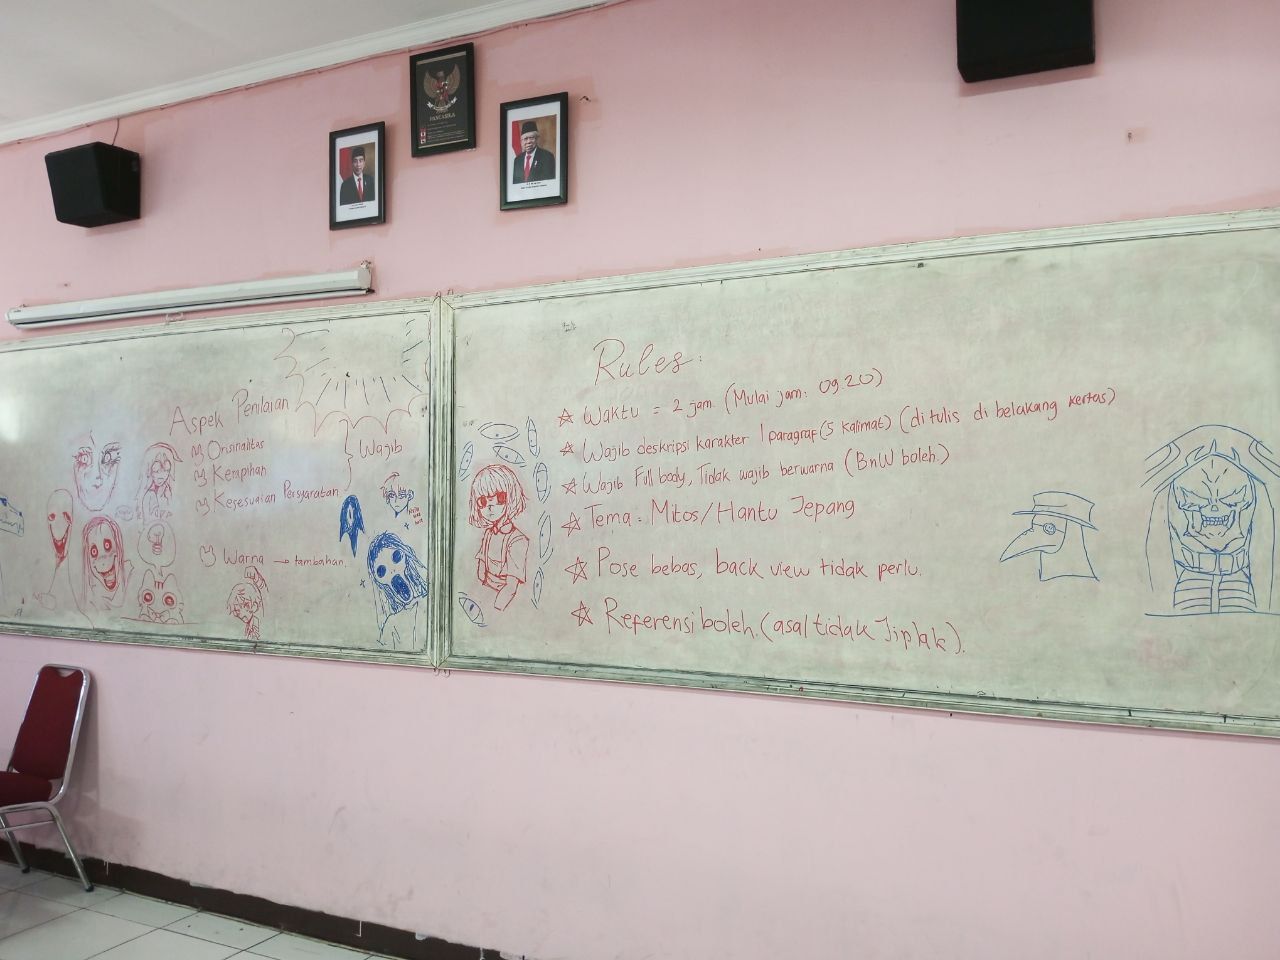 PANCASILA
Aspek Penilaian
Orisinalitas
Kerapihan
Kesesuaian Persyaratan
Wajib
Warna → tambahan.
Rules:
☆ Waktu = 2 jam. (Mulai jam: 09.20)
☆ Wajib deskripsi karakter 1 paragraf (5 kalimat) (di tulis di belakang kertas)
☆ Wajib Full body, Tidak wajib berwarna (BnW boleh)
☆ Tema: Mitos/Hantu Jepang
☆ Pose bebas, back view tidak perlu.
☆ Referensi boleh. (asal tidak Jiplak).